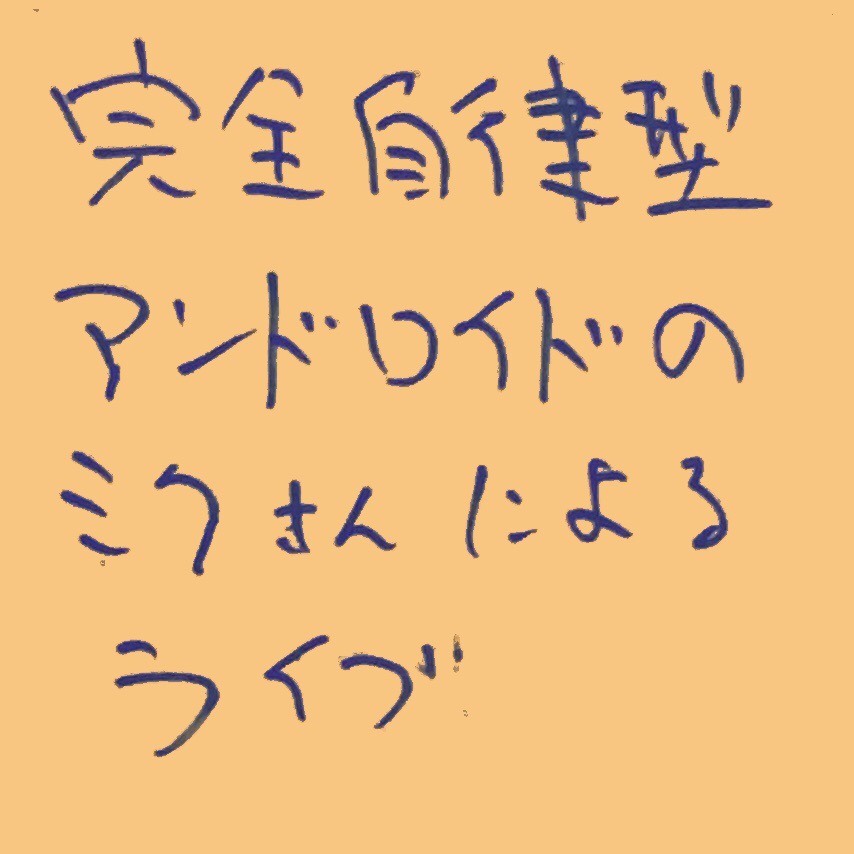 完全自律型
アンドロイドの
ミクさんによる
ライブ